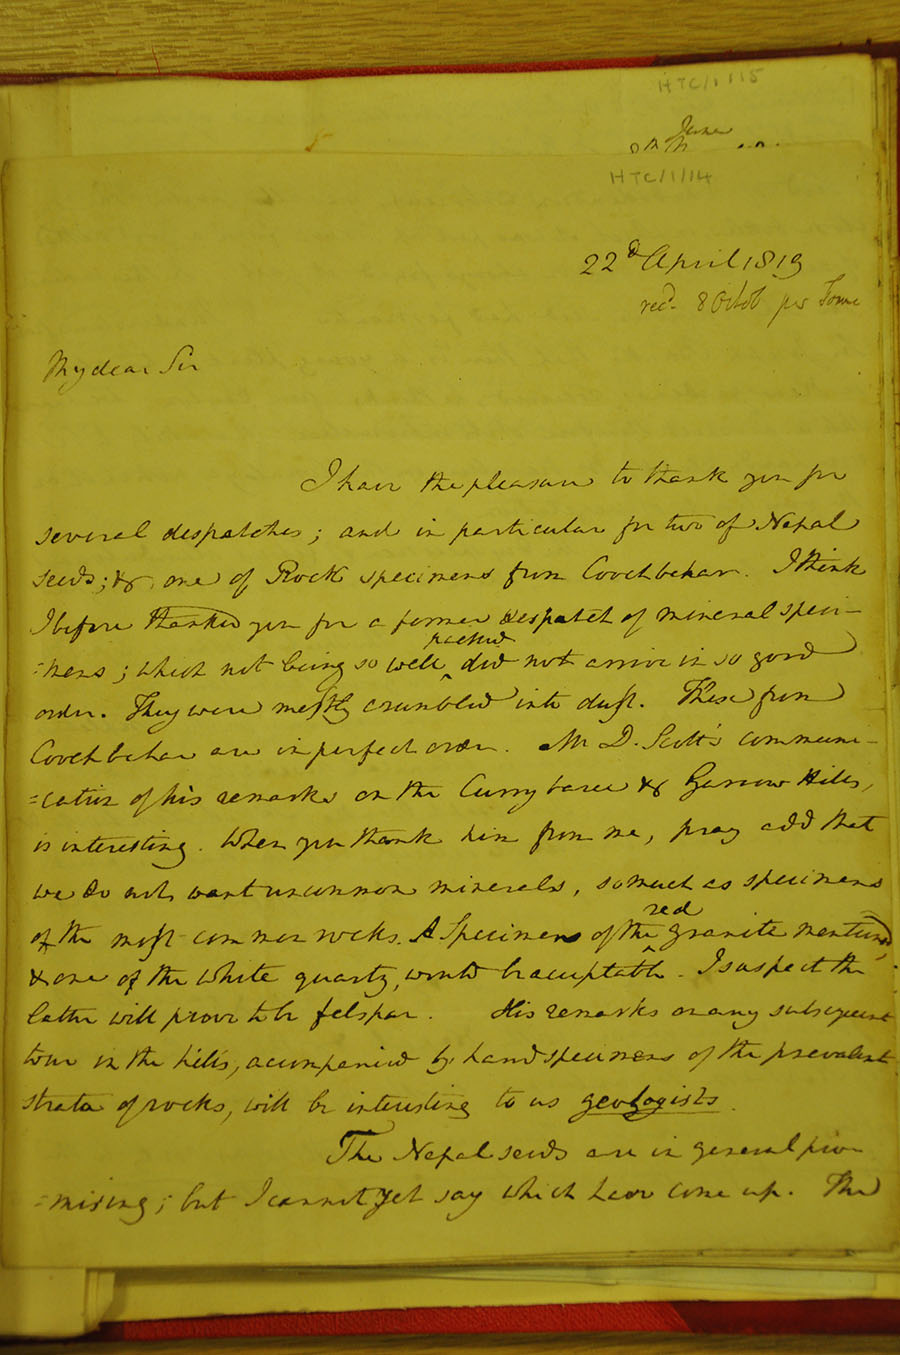 HTC/1/115
June
HTC/1/14
22d April 1819
recd. 8 Octob per Tome
My dear Sir
I have the pleasure to thank you for
several despatches; and in particular for two of Nepal
seeds; & one of Rock specimens from Coochbehar. I think
I before thanked you for a former despatch of mineral speci-
=mens; which not being so well packed did not arrive in so good
order. They were mostly crumbled into dust. These from
Coochbehar are in perfect order. Mr D. Scott's communi-
=cation of his remarks on the Currybaree & Garrow Hills,
is interesting. When you thank him from me, pray add that
we do not want uncommon minerals, so much as specimens
of the most common rocks. A Specimen of the red granite mentioned,
& one of the white quartz, would be acceptable. I suspect the
latter will prove to be felspar. His remarks on any subsequent
tour in the hills, accompanied by hand specimens of the prevalent
strata of rocks, will be interesting to us geologists.
The Nepal seeds are in general pro-
=mising; but I cannot yet say which have come up. The